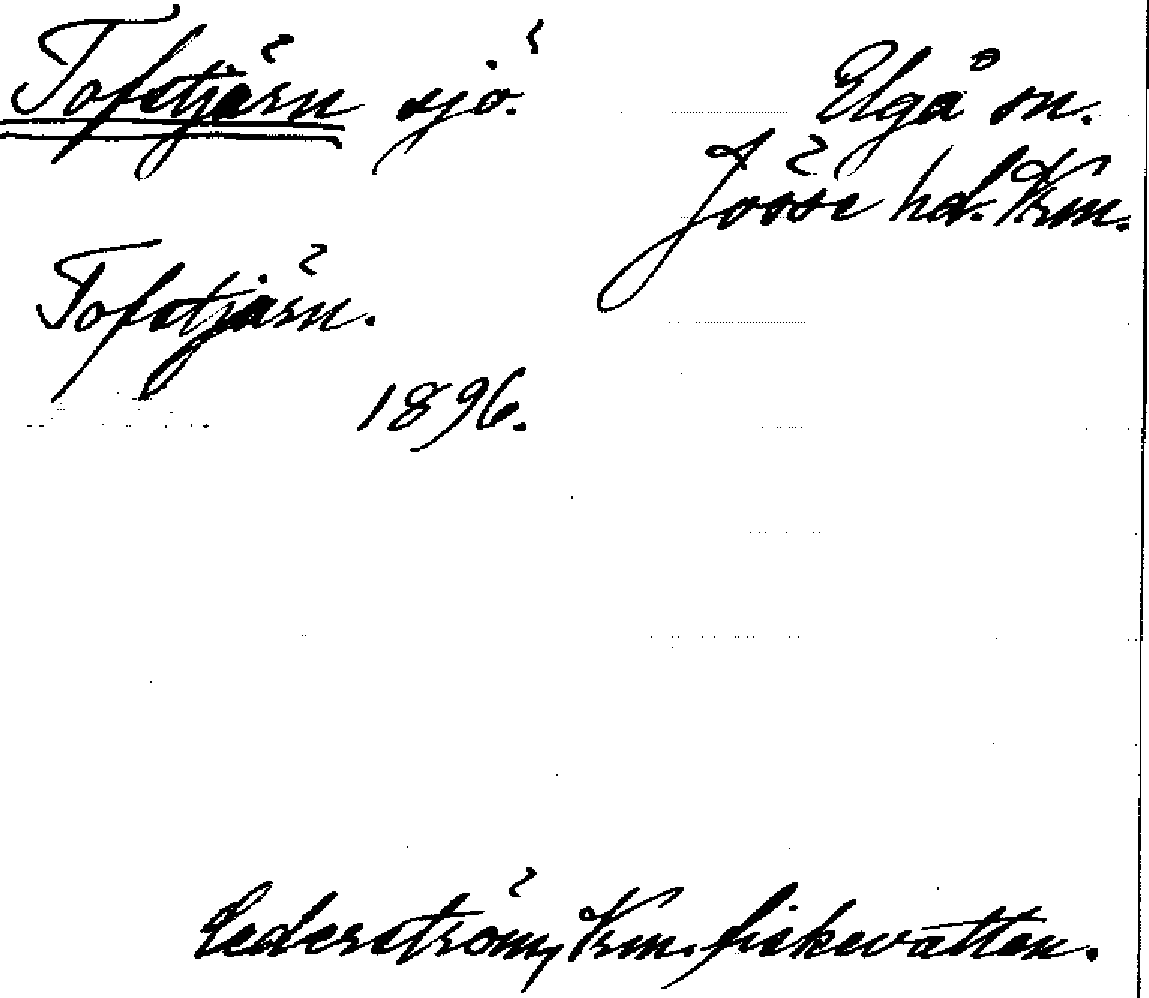 Tofstjärn sjö.
Elgå sn.
Jösse hd. Vrm.
Tofstjärn.
1896.
Cederström, Vrm. fiskevatten.